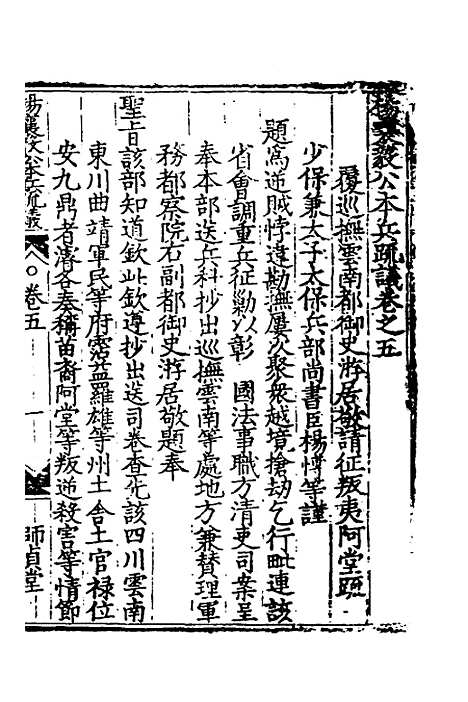 楊襄毅公本兵疏議卷之五
覆巡撫雲南都御史游居敬請征叛夷阿堂疏
少保兼太子太保兵部尚書臣楊博等謹
題爲逆賊悖違勘撫屢次聚衆越境搶劫乞行毗連該
省會調重兵征勦以彰　國法事職方清吏司案呈
奉本部送兵科抄出巡撫雲南等處地方兼賛理軍
務都察院右副都御史游居敬題奉
聖旨該部知道欽此欽遵抄出送司卷查先該四川雲南
東川曲靖軍民等府霑益羅雄等州土舍土官禄位
安九鼎者濬各奏稱苗裔阿堂等叛逆殺害等情節
楊襄毅公本兵疏議　卷五　一　師貞堂